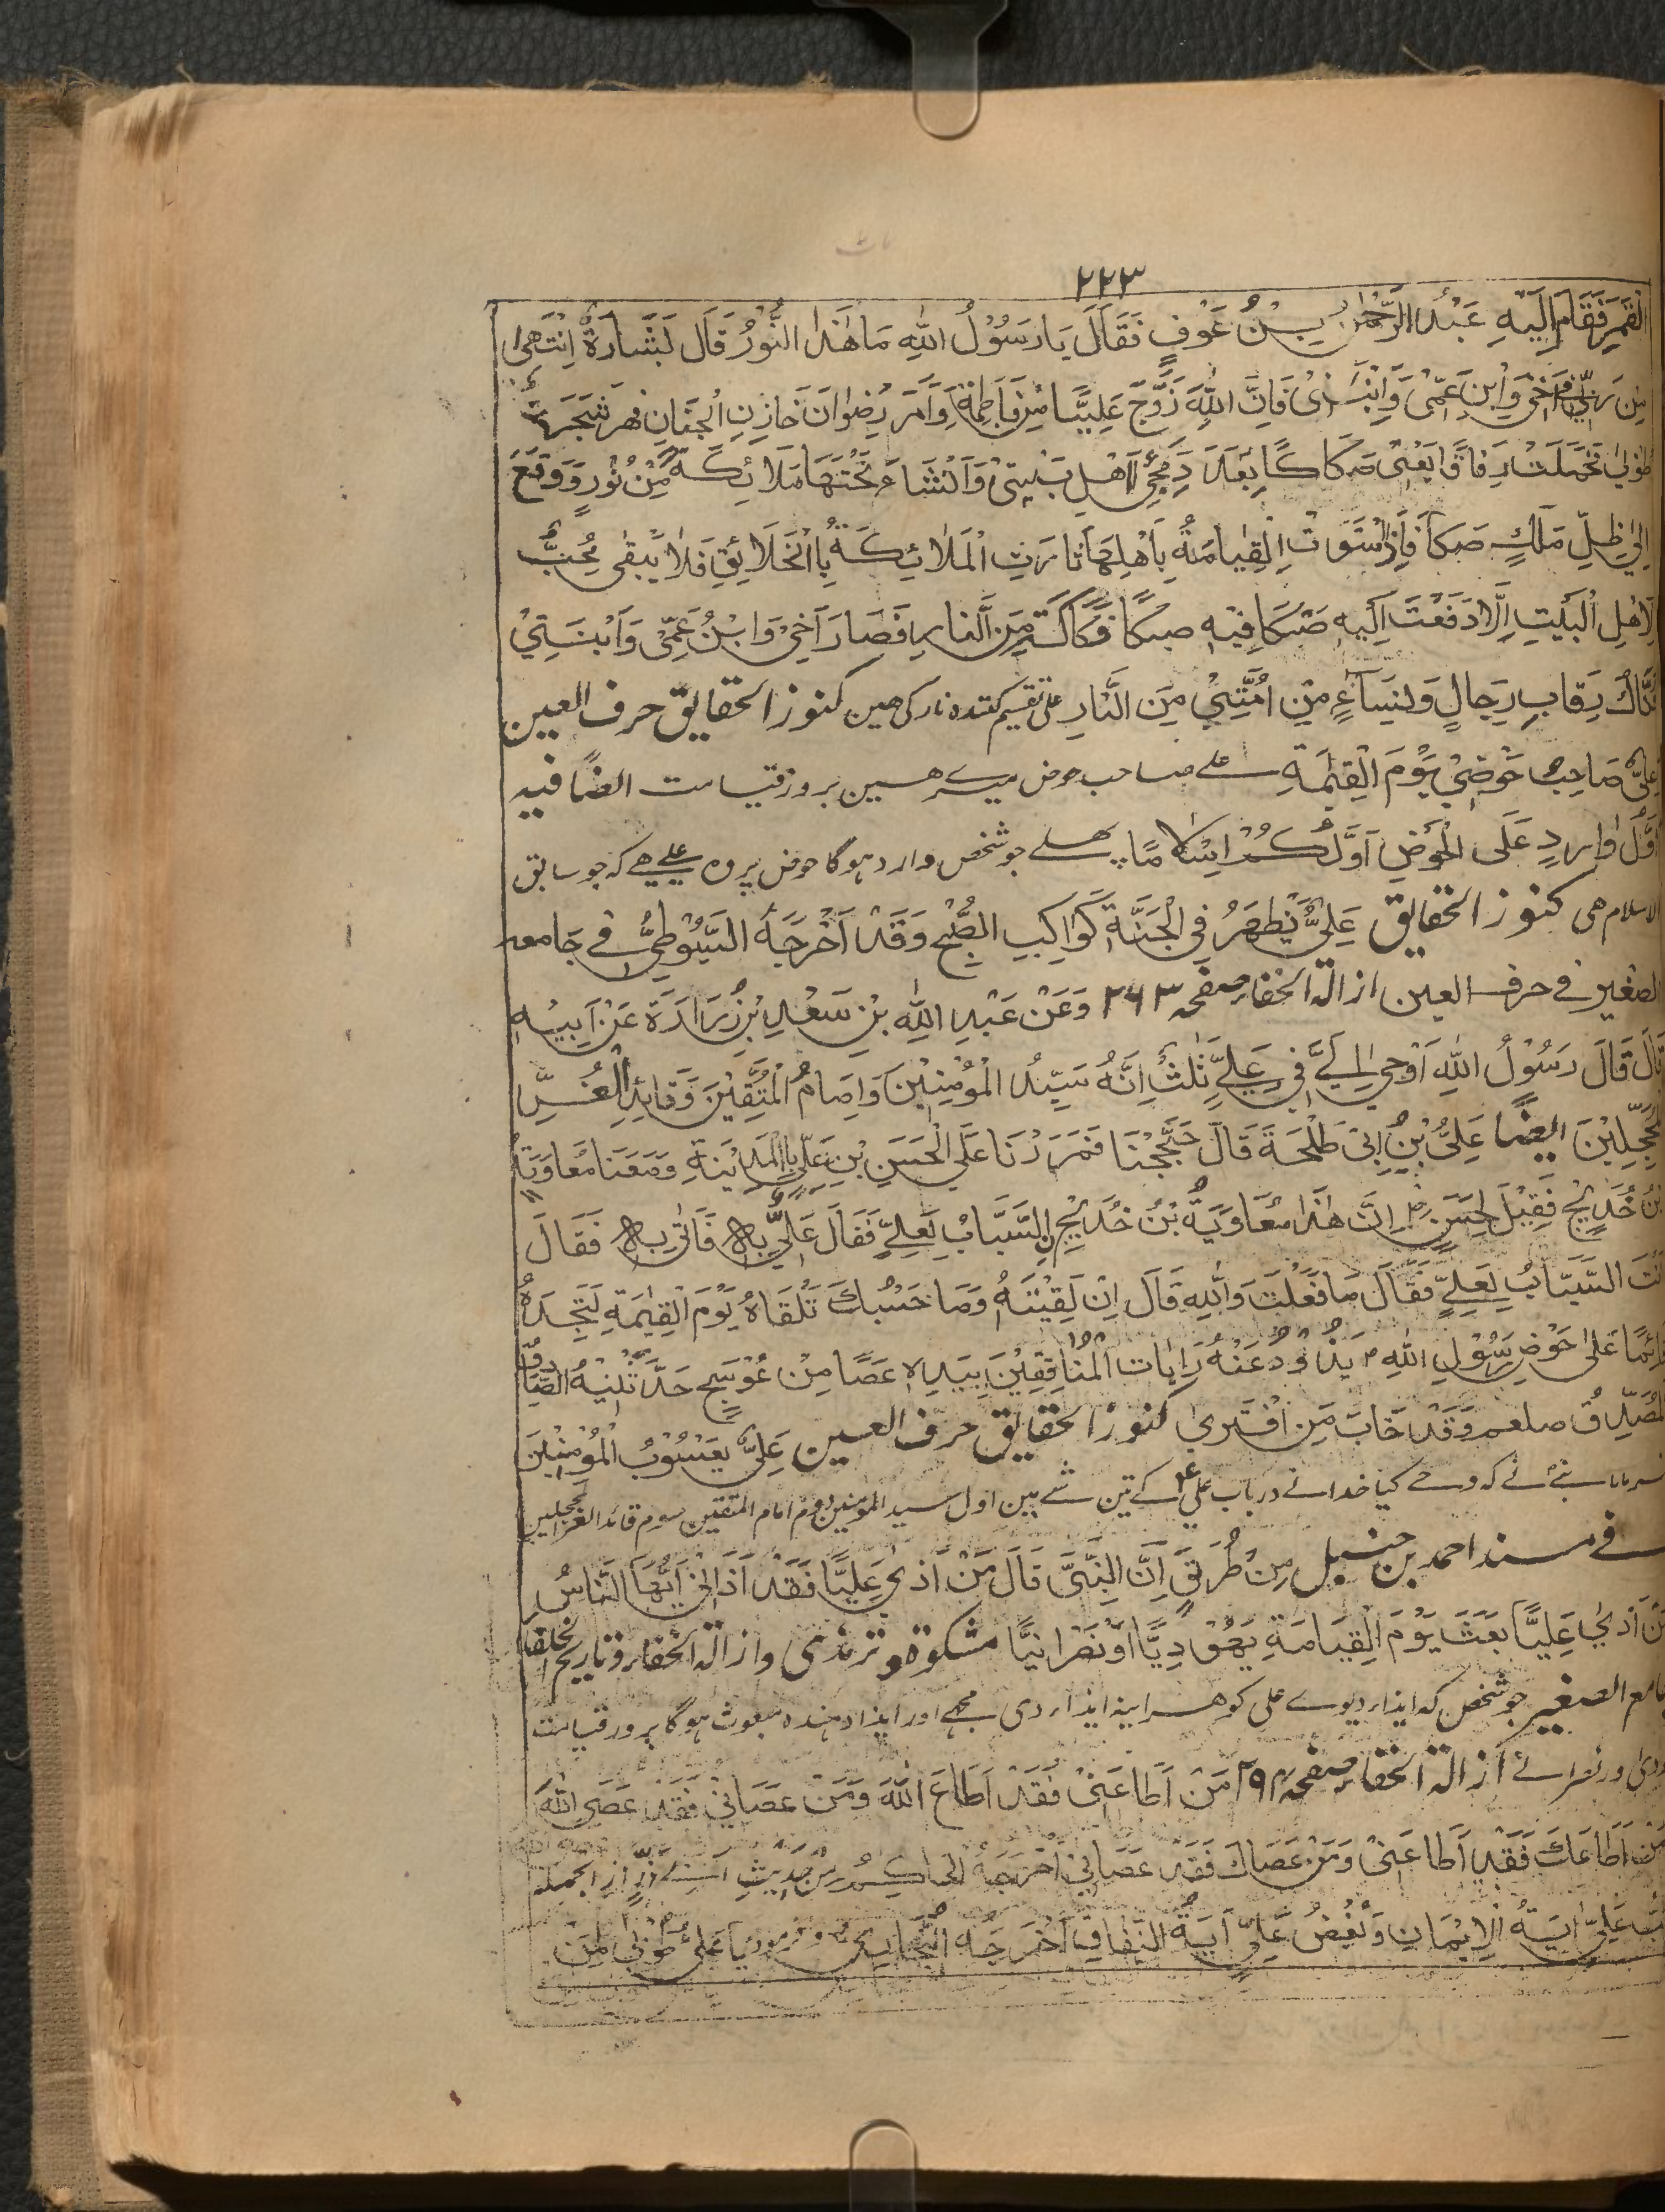 ٢٢٣
القمر فَقَامَ اِلَيْهِ عَبْدُ الرَّحْمٰنِ بْنُ عَوْفٍ فَقَالَ يَا رَسُوْلُ اللهِ مَا هٰذَا النُّوْرُ قَالَ بَشَارَةٌ اِنْتَهٰى
مِن رَبِّي فِي اَخِيْ وَابْنِ عَمِّيْ وَابْنَتِيْ فَاِنَّ اللهَ زَوَّجَ عَلِيًّا مِنْ فَاطِمَةَ وَاَمَرَ رِضْوَانَ خَازِنِ الْجَنَانِ فهز شَجَرَة
طُوْبٰى فحَمَلَتْ رِقَاقًا يَعْنِيْ صِكَاكًا بِعَدَدِ مُحِبِّيْ لِاَهْلِ بَيْتِيْ وَاَنْشَاءَ تَحْتَهَا مَلَائِكَةً مِّنْ نُوْرٍ وَ وَقَعَ
اِلٰى ظِلِّ مَلَكٍ صَكاً فَاِذَا اسْتَوَتْ الْقِيَامَةُ بِاَهْلِهَا نَادَتِ الْمَلَائِكَةُ بِاالْخَلَائِقِ فَلَا يَبْقٰى مُحِبٌّ
لِاَهْلِ الْبَيْتِ اِلَّا دَفَعْتَ اِلَيْهِ صَكًا فِيْهِ صكًا فَكَاكَةٌ مِّنَ النَّارِ فَصَارَ اَخِيْ وَابْنُ عَمِّيْ وَابْنَتِيْ
فَكَّاكُ رِقَابِ رِجَالٍ وَنِسَاءٍ مِنْ اُمَّتِيْ مِنَ النَّارِ علی تقسیم کننده نار کی هین کنوز الحقایق حرف العین
عَلِيٌّ صَاحِبُ حَوْضِيْ يَوْمَ الْقِيٰمَةِ علی صاحب حوض میرے هین بروز قیامت ایضًا فیه
اَوَّلُ وَارِدٍ عَلَى الْحَوْضِ اَوَّلُكُمْ اِسْلَامًا پهلے جو شخص وارد ہوگا حوض پر وہ علی هے کہ جو سابق
الاسلام هی کنوز الحقایق عَلِيٌّ يَظْهَرُ فِي الْجَنَّةِ كَوَاكِبِ الصُّبْحِ وَقَدْ اَخْرَجَهُ السَّيُوْطِيُّ فِي جَامعه
الصغیر فی حرف العین ازالة الخفاء صفحه ٢٦٣ وَعَنْ عَبْدِ اللهِ بْنِ سَعْدِ بْنِ زُرَارَةَ عَنْ اَبِيْهِ
قَالَ قَالَ رَسُوْلُ اللهِ اَوْحٰى اِلَيَّ فِيْ عَلِيٍّ ثَلٰثٌ اَنَّهُ سَيِّدُ الْمُؤْمِنِيْنَ وَاِمَامُ الْمُتَّقِيْنَ وَقَائِدِ الْغُرِّ ا
لْمُحَجَّلِيْنَ ایضًا عَلِيُّ بْنِ اَبِيْ طَلْحَةَ قَالَ حَجَّجْنَا فَمَرَرْنَا عَلَى الْحَسَنِ بْنِ عَلِيٍّ بِالْمَدِيْنَةِ وَمَعَنَا مُعَاوِيَةُ
بْنُ خُدَيْجٍ فَقِيْلَ لِحَسَنٍ اِنَّ هٰذَا مُعَاوِيَةُ بْنُ خُدَيْجِ نِ السَّبَابُ لِعَلِيٍّ فَقَالَ عَلَيَّ بِهٖ فَاَتٰى بِهٖ فَقَالَ
اَنْتَ السَّبَّابُ لِعَلِيٍّ فَقَالَ مَا فَعَلْتُ وَاللهِ قَالَ اِنْ لَقِيْتَهُ وَمَا حَسْبُكَ تَلْقَاهُ يَوْمَ الْقِيٰمَةِ لَتَجِدَهُ
قَائِمًا عَلٰى حَوْضِ رَسُوْلِ اللهِ ص يَذُوْدُ عَنْهُ رَايَاتِ الْمُنَافِقِيْنَ بِيَدِهٖ عَصًا مِنْ عَوْسَجٍ حَدَّثَنِيْهُ الصَّادِقُ
الْمُصَدِّقُ صلعم وَقَدْ خَابَ مَنِ افْتَرٰى کنوز الحقایق حرف العین عَلِيٌّ يَعْسُوْبُ الْمُؤْمِنِيْنَ
فرمایا نبی نے کہ وحی کیا خدا نے در باب علی ع کے تین شے ہین اول سید المومنین دوم امام المتقین سوم قائد الغر المحجلین
فی مسند احمد بن حنبل مِنْ طُرَقٍ اَنَّ النَّبِيَّ قَالَ مَنْ اَذٰى عَلِيًّا فَقَدْ اَذَانِيْ اَيُّهَا النَّاسُ
مَنْ اَذٰى عَلِيًّا بَعَثَ يَوْمَ الْقِيَامَةِ يَهُوْدِيًّا اَوْ نَصْرَانِيًّا مشکوة و ترمذی و ازالة الخفاء و تاریخ الخلفا
جامع الصغیر جو شخص کہ ایذا دیوے علی کو هر آینه ایذا دی مجھے اور ایذا دهنده مبعوث ہوگا بروز قیامت
اور نصرانی ازالة الخفاء صفحه مَنْ اَطَاعَنِيْ فَقَدْ اَطَاعَ اللهَ وَمَنْ عَصَانِيْ فَقَدْ عَصَى اللهَ
مَنْ اَطَاعَكَ فَقَدْ اَطَاعَنِيْ وَمَنْ عَصَاكَ فَقَدْ عَصَانِيْ اَخْرَجَهُ الْحَاكِمُ مِنْ حَدِيْثِ
حُبُّ عَلِيٍّ اٰيَةُ الْاِيْمَانِ وَبُغْضُ عَلِيٍّ اٰيَةُ النِّفَاقِ اَخْرَجَهُ الْبُخَارِيُّ يَا عَلِيُّ طُوْبٰى لِمَنْ